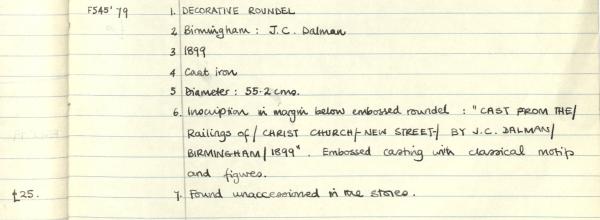 F545'79 1. DECORATIVE ROUNDEL
2 Birmingham: J.C. Dalman
3 1899
4 Cast iron
5 Diameter: 55.2 cms.
6. Inscription in margin below embossed roundel: "CAST FROM THE/
Railings of/ CHRIST CHURCH/-NEW STREET-/ BY J.C. DALMAN/
BIRMINGHAM/1899". Embossed casting with classical motifs
and figures.
£25. 7. Found unaccessioned in the stores.